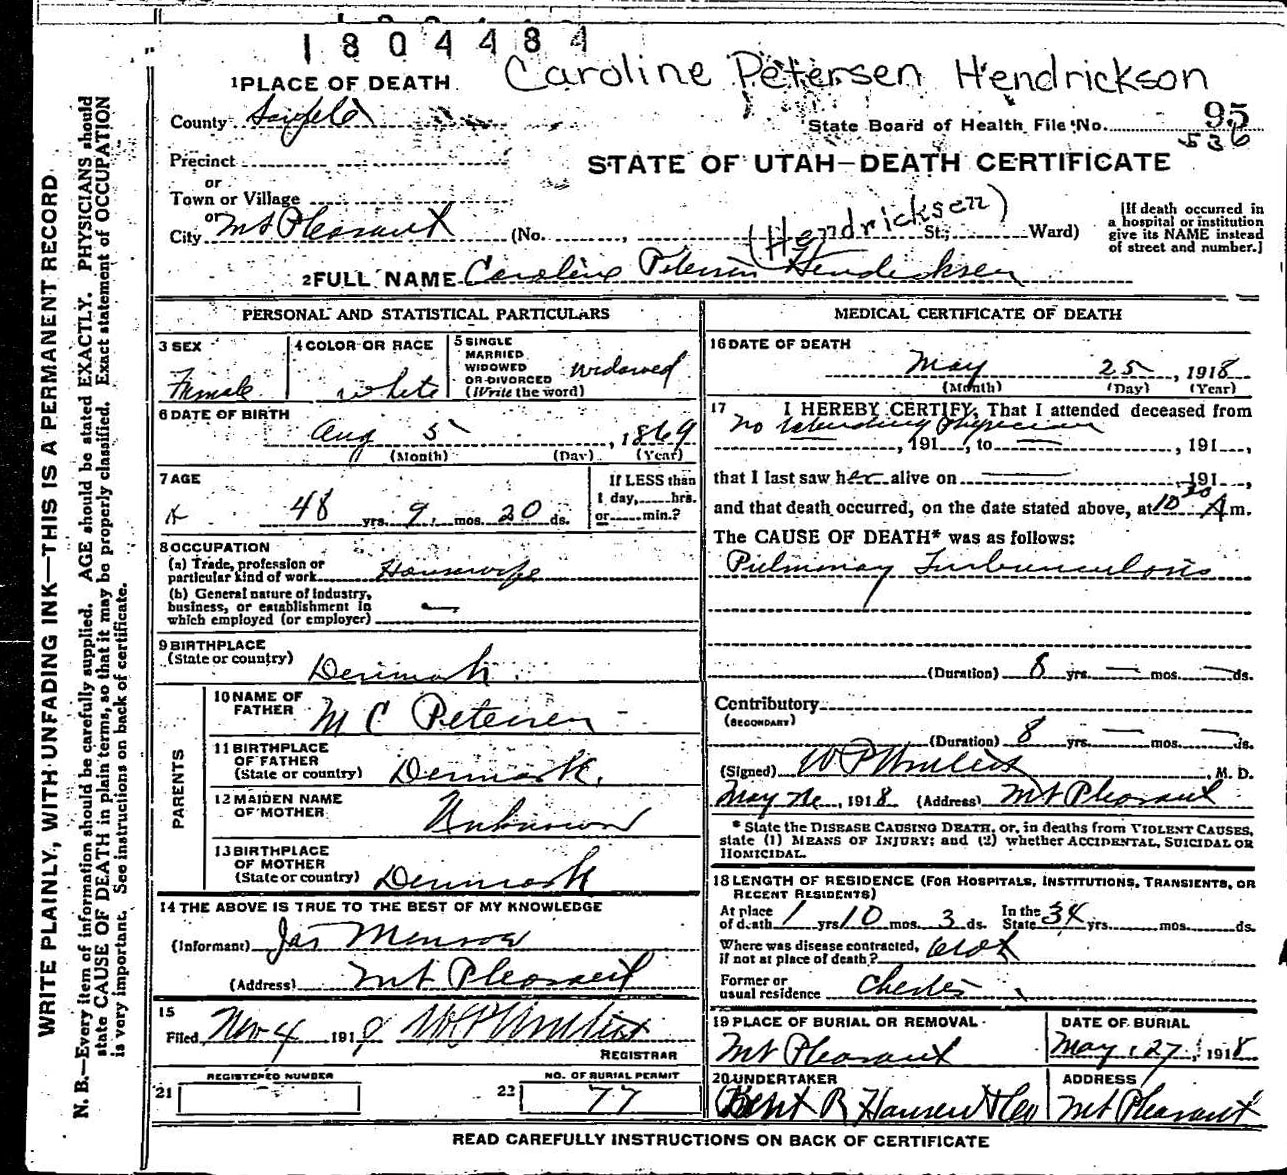 1804484
Caroline Petersen Hendrickson
1 PLACE OF DEATH
County
State Board of Health File No. 95
536
Precinct
STATE OF UTAH—DEATH CERTIFICATE
or
Town or Village
or
City Mt Pleasant (No. , St.; Ward)
(Hendricksen)
[If death occurred in
a hospital or institution
give its NAME instead
of street and number.]
2 FULL NAME Caroline Petersen Hendricksen
PERSONAL AND STATISTICAL PARTICULARS
3 SEX
Female
4 COLOR OR RACE
white
5 SINGLE
MARRIED
WIDOWED
OR DIVORCED
(Write the word)
widowed
6 DATE OF BIRTH
Aug 5 , 1869
(Month) (Day) (Year)
7 AGE
48 yrs. 9 mos. 20 ds.
If LESS than
1 day, hrs.
or min.?
8 OCCUPATION
(a) Trade, profession or
particular kind of work Housewife
(b) General nature of industry,
business, or establishment in
which employed (or employer)
9 BIRTHPLACE
(State or country) Denmark
PARENTS
10 NAME OF
FATHER M C Petersen
11 BIRTHPLACE
OF FATHER
(State or country) Denmark.
12 MAIDEN NAME
OF MOTHER Unknown
13 BIRTHPLACE
OF MOTHER
(State or country) Denmark
14 THE ABOVE IS TRUE TO THE BEST OF MY KNOWLEDGE
(Informant) Jas
(Address) Mt Pleasant
15
Filed Nov 4 191
REGISTRAR
REGISTERED NUMBER
21
NO. OF BURIAL PERMIT
22 77
MEDICAL CERTIFICATE OF DEATH
16 DATE OF DEATH
May 25 , 1918
(Month) (Day) (Year)
17 I HEREBY CERTIFY, That I attended deceased from
No attending physician
, 191 , to , 191 ,
that I last saw her alive on 191 ,
and that death occurred, on the date stated above, at 10 30 A m.
The CAUSE OF DEATH* was as follows:
Pulmonary Turbunculosis
(Duration) 8 yrs. — mos. — ds.
Contributory
(SECONDARY)
(Duration) 8 yrs. — mos. — ds.
(Signed) M. D.
May , 1918 (Address) Mt Pleasant
* State the DISEASE CAUSING DEATH, or, in deaths from VIOLENT CAUSES,
state (1) MEANS OF INJURY; and (2) whether ACCIDENTAL, SUICIDAL OR
HOMICIDAL.
18 LENGTH OF RESIDENCE (FOR HOSPITALS, INSTITUTIONS, TRANSIENTS, OR
RECENT RESIDENTS)
At place
of death 1 yrs 10 mos. 3 ds. In the
State 34 yrs. mos. ds.
Where was disease contracted,
if not at place of death?
Former or
usual residence Chester
19 PLACE OF BURIAL OR REMOVAL
Mt Pleasant
DATE OF BURIAL
May 27, 1918
20 UNDERTAKER
R Hansen
ADDRESS
Mt Pleasant
READ CAREFULLY INSTRUCTIONS ON BACK OF CERTIFICATE
WRITE PLAINLY, WITH UNFADING INK—THIS IS A PERMANENT RECORD
N. B.—Every item of information should be carefully supplied. AGE should be stated EXACTLY. PHYSICIANS should
state CAUSE OF DEATH in plain terms, so that it may be properly classified. Exact statement of OCCUPATION
is very important. See instructions on back of certificate.